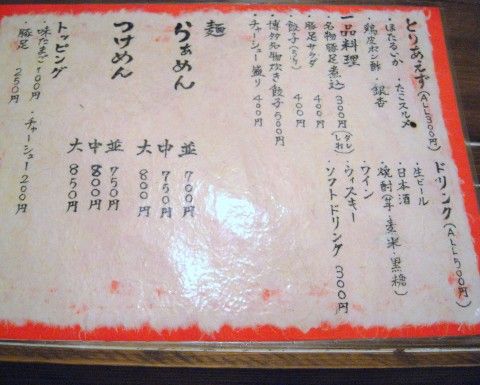 とりあえず(ALL300円)
・ほたるいか ・たこスルメ
・鶏皮ポン酢 ・銀杏
一品料理
・名物豚足煮込 300円
・豚足サラダ 400円
・餃子 400円
・博多名物炊き餃子 500円
・チャーシュー盛り 400円
ドリンク(ALL500円)
・生ビール
・日本酒
・焼酎(芋・麦・米・黒糖)
・ワイン
・ウィスキー
・ソフトドリンク 300円
麺
らぁめん
並 700円
中 750円
大 800円
つけめん
並 750円
中 800円
大 850円
トッピング
・味たまご100円 ・チャーシュー200円
・豚足 250円